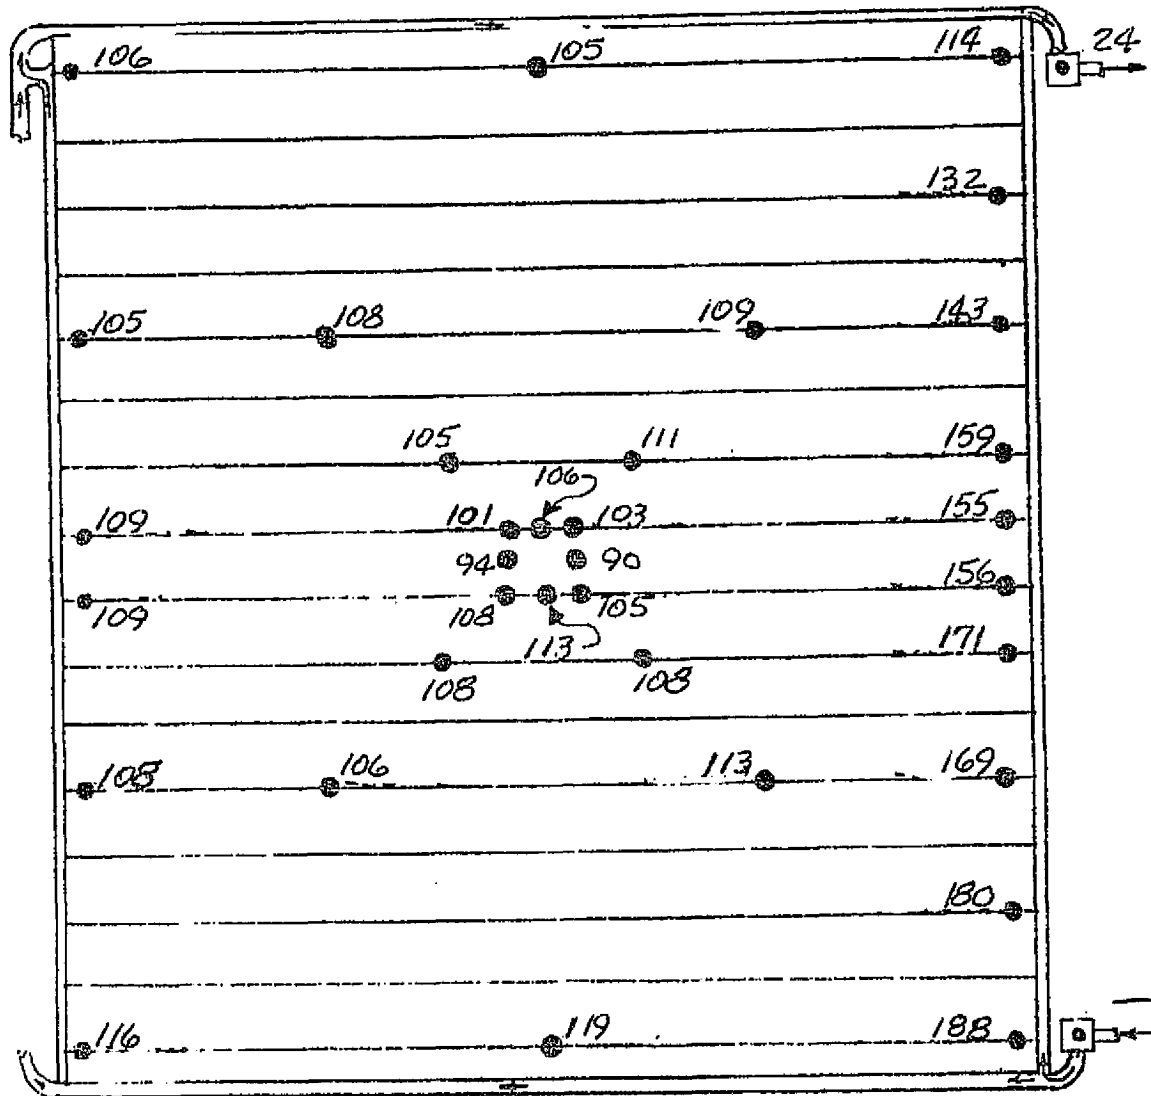 106 105 114 24
132
105 108 109 143
105 111 159
106
109 101 103 155
94 90
109 108 105 156
113 171
108 108
108 106 113 169
180
116 119 188